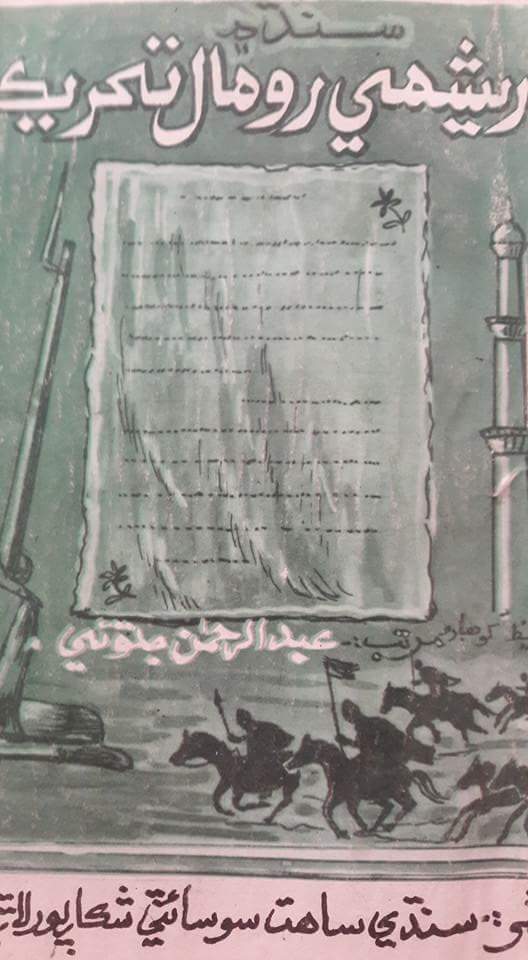 سنڌي
ريشمي رومال تحريڪ
مرتب:-
عبدالرحمٰن جتوئي
سنڌي ساهت سوسائٽي شڪارپور